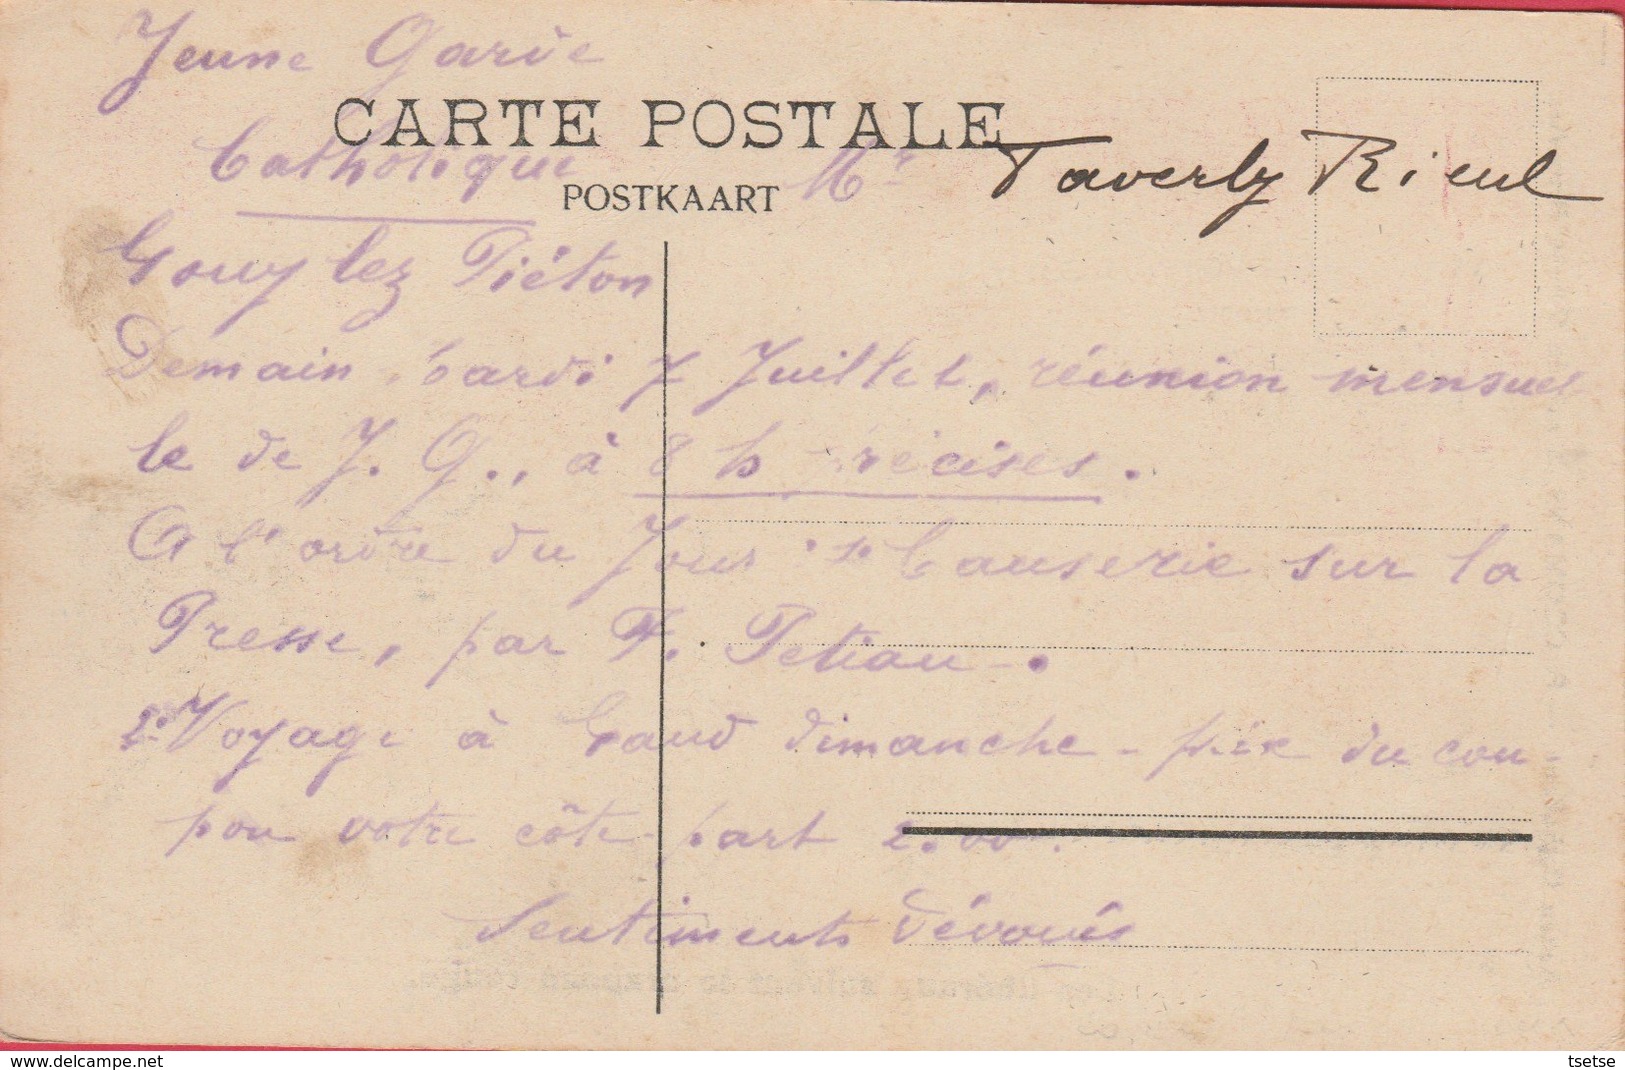 Jeune Garde
CARTE POSTALE
Catholique
POSTKAART
Mr Taverly Rieul
Gouy lez Piéton
Demain Mardi 7 Juillet, réunion mensuel
le de J. G., à 8 h précises.
A l'ordre du Jour : 1° Causerie sur la
Presse, par F. Petiau.
2° Voyage à Gand dimanche - prix du cou-
pon votre côte-part 2.00.
Sentiments dévoués
delcampe.net
tsetse